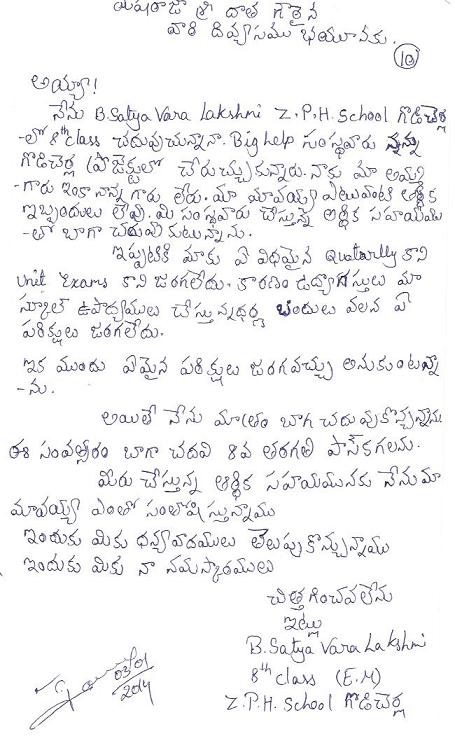 మహారాజా శ్రీ దాత గౌరైన
వారి దివ్యసముఖమునకు.
10
అయ్యా!
నేను B.Satya Vara Lakshmi Z.P.H. School గొడిచెర్ల
-లో 8th class చదువుచున్నాను. Big help సంస్థవారు నన్ను
గొడిచెర్ల ప్రాజెక్టులో చేరుచ్చుకున్నారు. నాకు మా అమ్మ
-గారు ఇంకా నాన్న గారు లేరు. మా మావయ్య ఎటువంటి ఆర్థిక
ఇబ్బందులు లేవు. మి సంస్థవారు చేస్తున్న ఆర్థిక సహయము
-తో బాగా చదువుకుటున్నాను.
ఇప్పటికి మాకు ఏ విధమైన Quaturlly కాని
unit Exams కాని జరగలేదు. కారణం ఉద్యోగస్తులు మా
స్కూల్ ఉపాద్యాములు చేస్తున్న ధర్న బందులు వలన ఏ
పరిక్షులు జరగలేదు.
ఇక ముందు ఏమైన పరిక్షులు జరగవచ్చు అనుకుంటున్నా
-ను.
అయితే నేను మాత్రం బాగ చదువుకొచ్చున్నాను
ఈ సంవత్సరం బాగా చదవి 8వ తరగతి పాస్ కగలను.
మిరు చేస్తున్న ఆర్థిక సహయమునకు నేను మా
మావయ్య ఎంతో సంతోషిస్తున్నాము
ఇందుకు మికు ధన్యవాదములు తెలుపుకొన్చున్నాము
ఇందుకు మికు నా నమస్కారములు
చిత్తగించవలేను
ఇట్లు
B.Satya Vara Lakshmi
8th class (E.M)
Z.P.H. School గొడిచెర్ల
03/01
2014